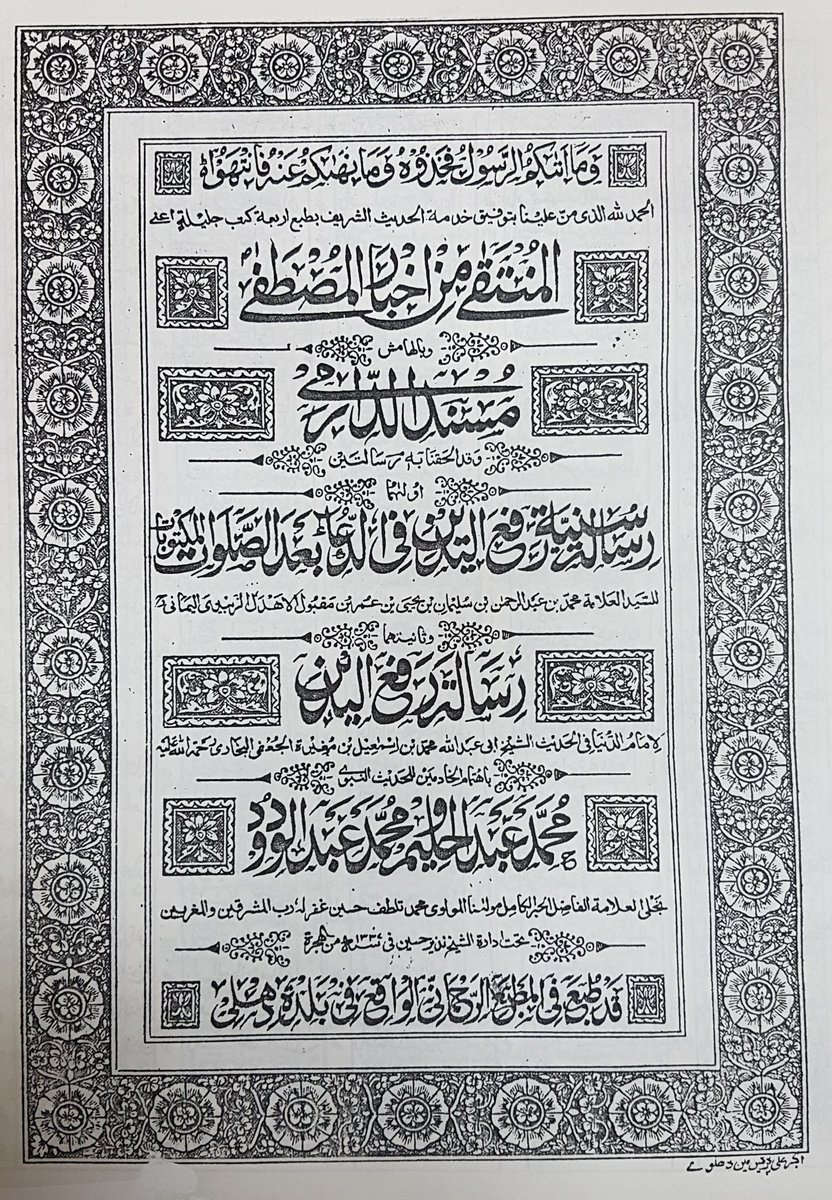 وَمَا اٰتٰىكُمُ الرَّسُوْلُ فَخُذُوْهُ وَمَا نَهٰىكُمْ عَنْهُ فَانْتَهُوْا
الحمد لله الذى منّ علينا بتوفيق خدمة الحديث الشريف بطبع اربعة كتب جليلة اعنى
المُنتقى مِن اخبار المُصْطَفى
وبالهامش
مُسْنَد الدّارمى
وقد الحقنا به رسالتين
اولٰهما
رسالة سنية رفع اليَدين فى الدعا بَعد الصَّلوات المكتوبات
للسيد العلامة محمد بن عبد الرحمن بن سليمان بن يحيى بن عمر بن مقبول الاهدل الزبيدى اليمانى رح
وثانيتهما
رسالة رفع اليدين
لامام الدنيا فى الحديث الشيخ ابى عبد الله محمد بن اسمعيل بن مغيرة الجعفى البخارى رحمة الله عليه
باهتمام الخادمين للحديث النبوى
مُحمَّد عَبد الحليم و مُحمَّد عَبد الودود
نجلى العلامة الفاضل الحبر الكامل مولٰنا المولوى محمد تلطف حسين غفر له رب المشرقين والمغربين
تحت ادارة الشيخ نذير حسين فى سنة ١٣٣٧ من الهجرة
قد طبع فى المطبع الرحمانى الواقع فى بَلدة دهلى